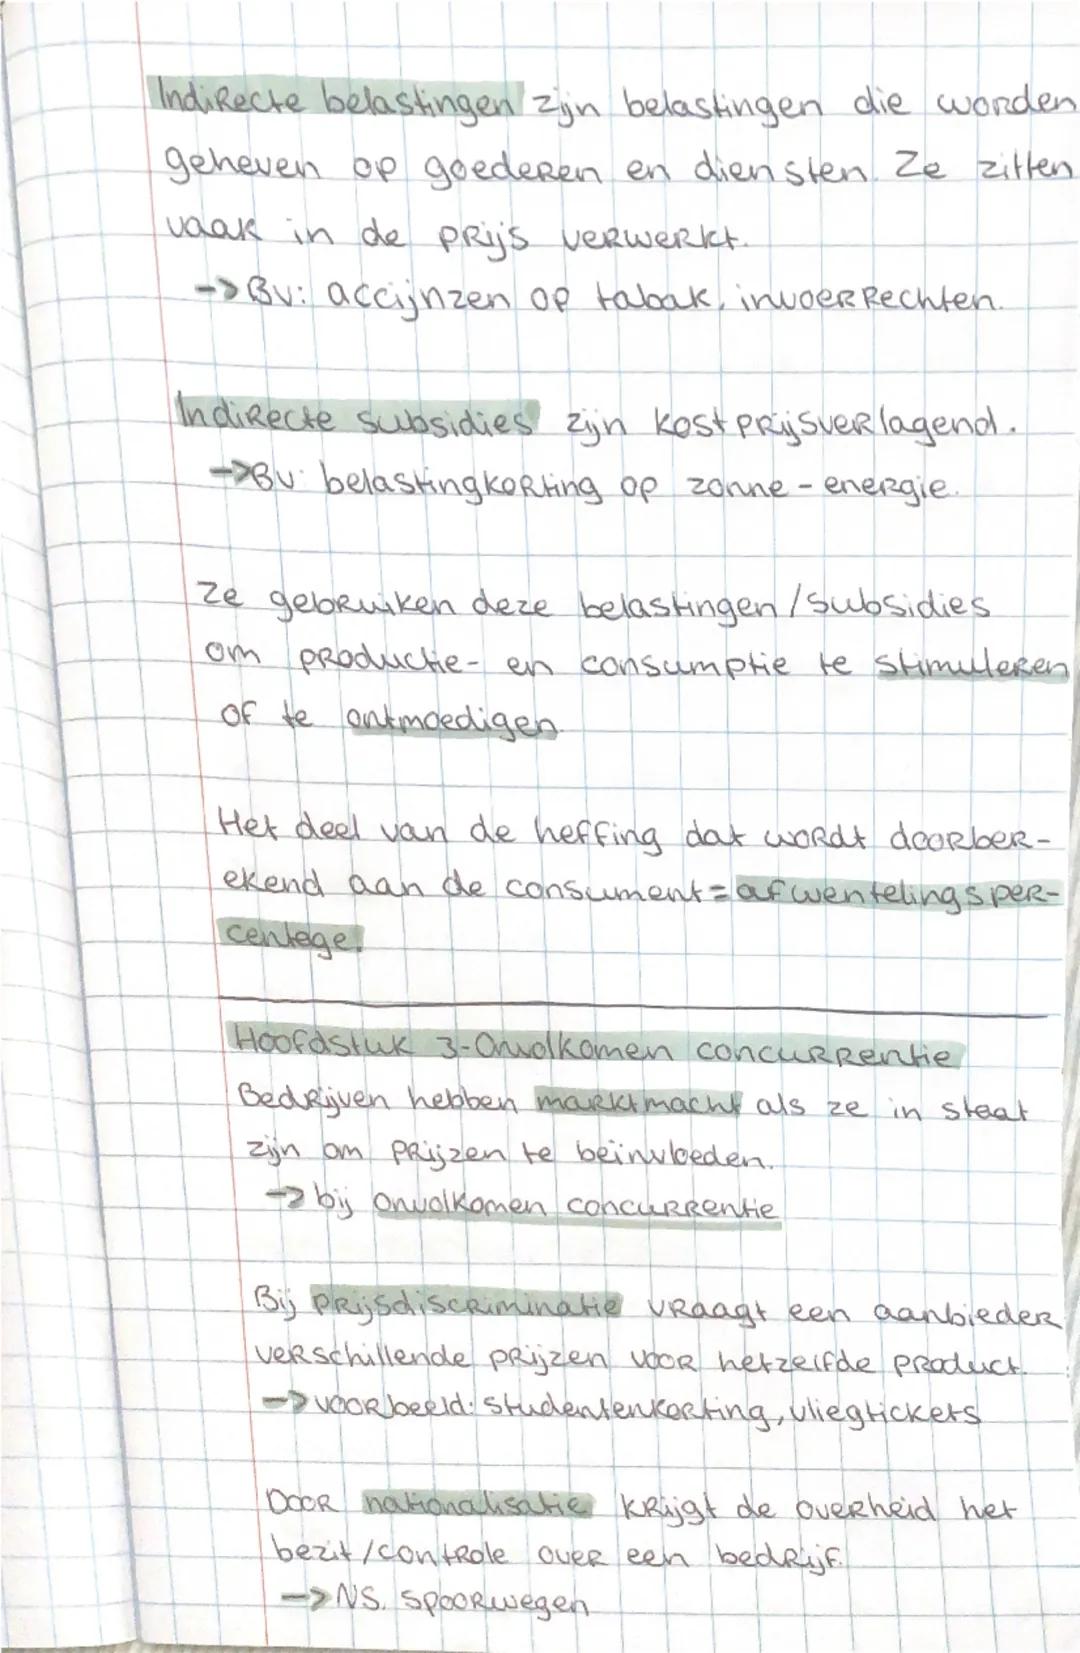 Indirecte belastingen zijn belastingen die worden
geheven op goederen en diensten. Ze zitten
vaak in de prijs verwerkt.
->Bv: accijnzen op tabak, invoerrechten.
Indirecte subsidies zijn kostprijsverlagend.
->Bv: belastingkorting op zonne-energie.
Ze gebruiken deze belastingen/subsidies
om productie- en consumptie te stimuleren
of te ontmoedigen.
Het deel van de heffing dat wordt doorber-
ekend aan de consument = afwentelingsper-
centege.
Hoofdstuk 3-Onvolkomen concurrentie
Bedrijven hebben marktmacht als ze in staat
zijn om prijzen te beïnvloeden.
-> bij onvolkomen concurrentie
Bij prijsdiscriminatie vraagt een aanbieder
verschillende prijzen voor hetzelfde product.
-> voorbeeld: studentenkorting, vliegtickets
Door nationalisatie krijgt de overheid het
bezit/controle over een bedrijf.
-> NS. spoorwegen